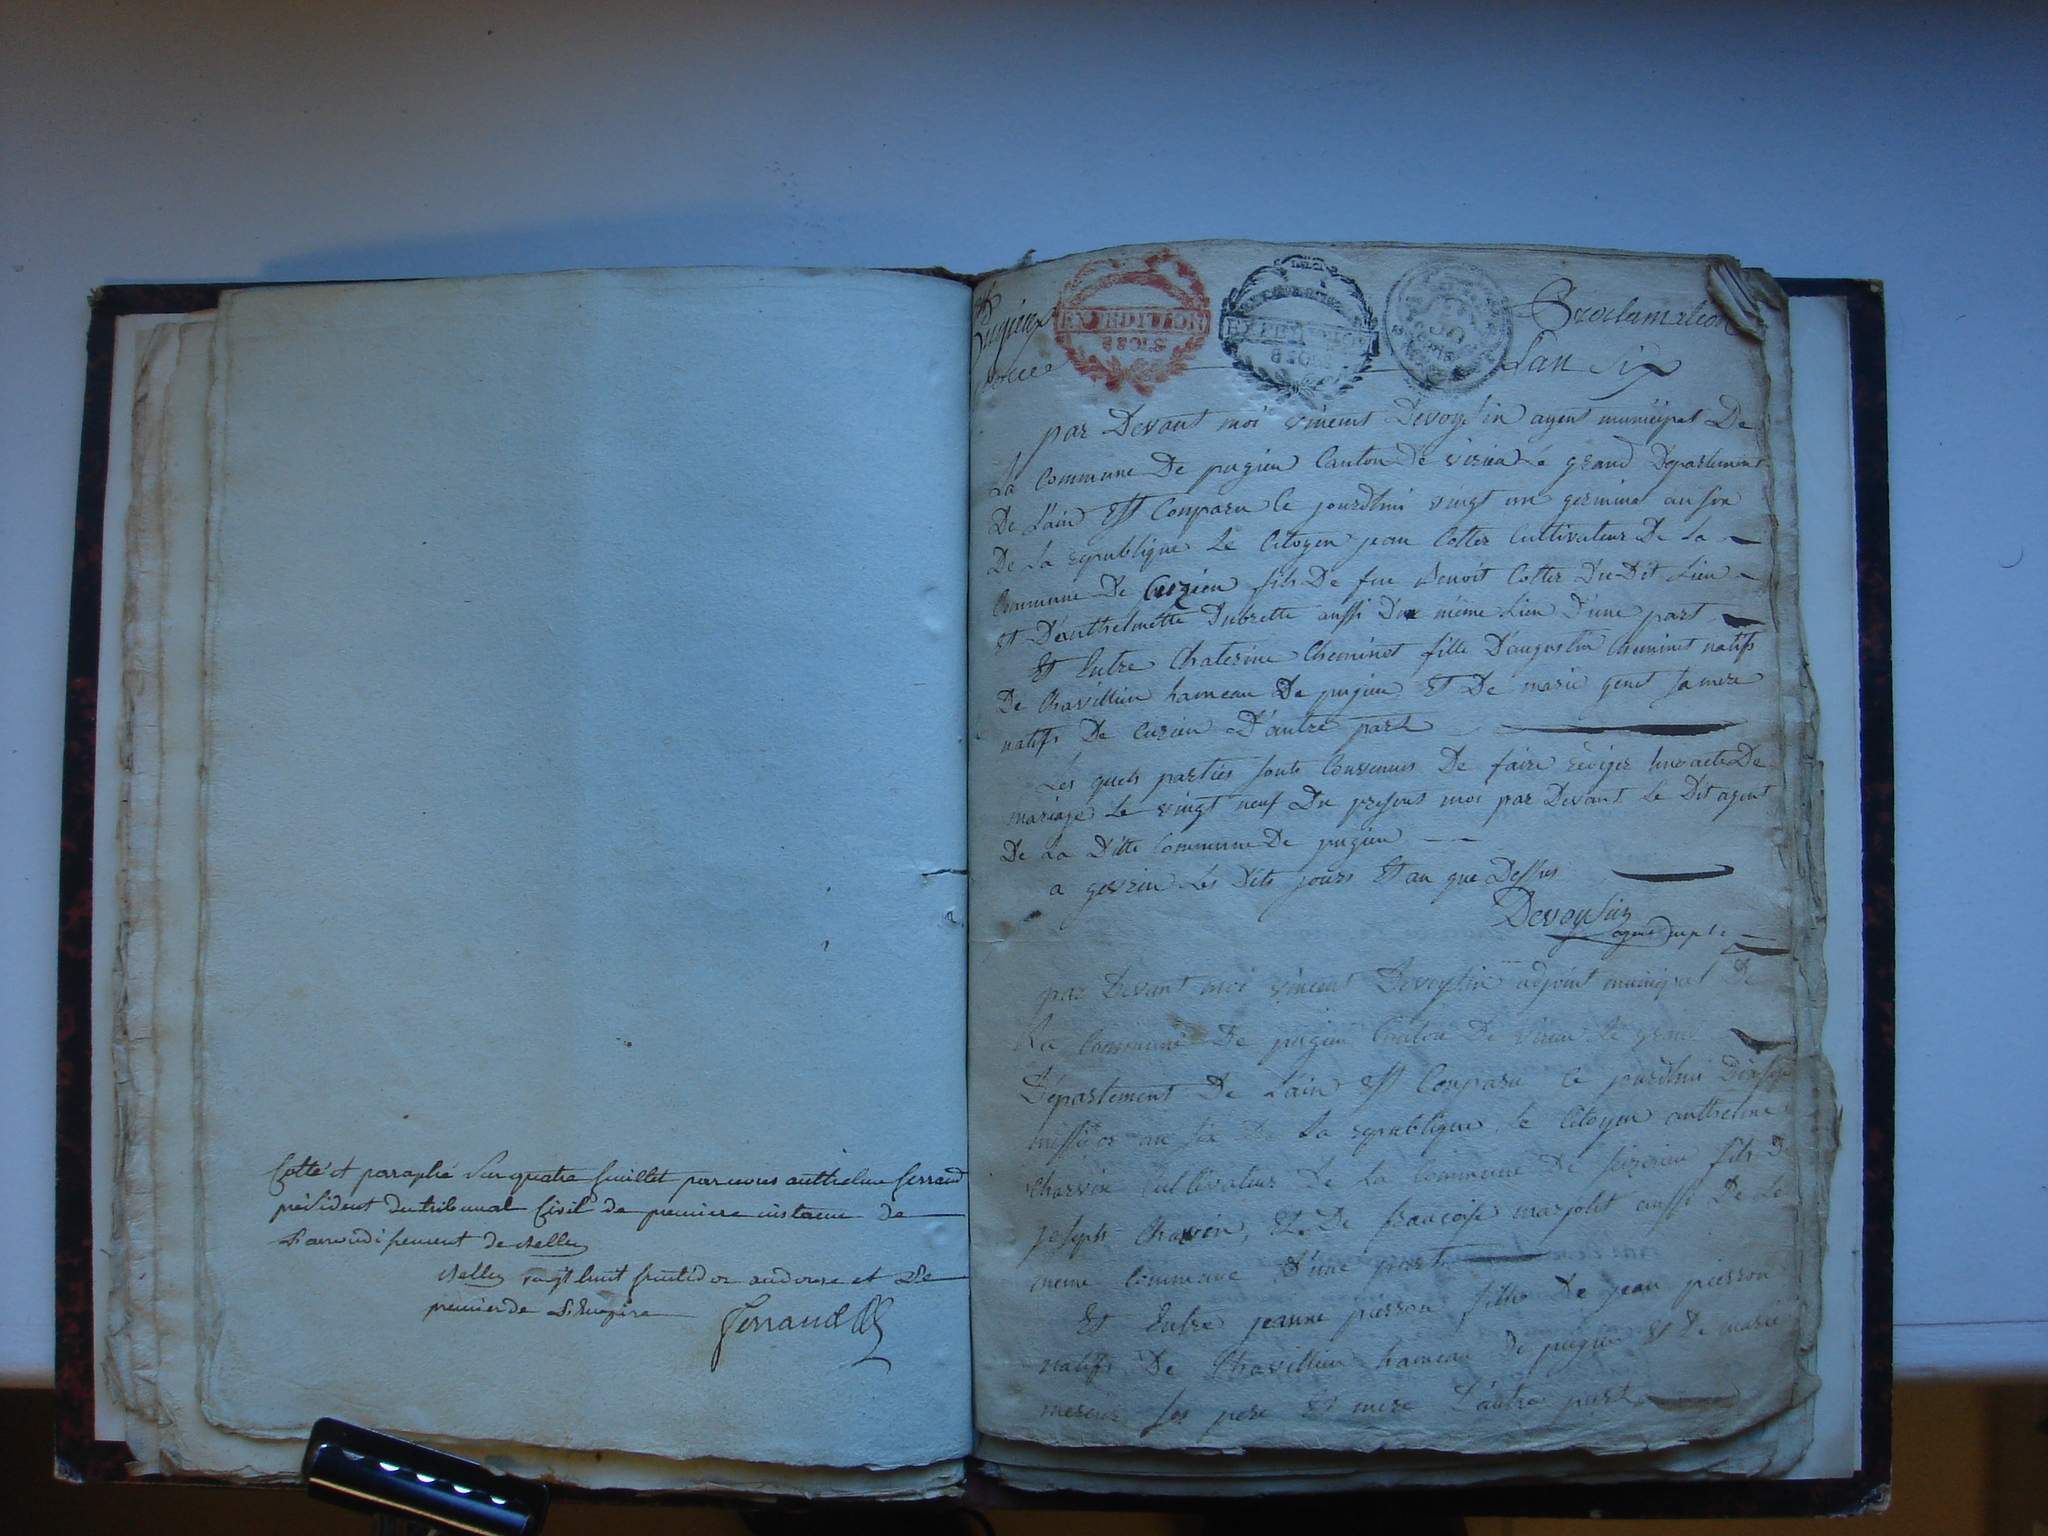 Cotté et paraphé Sur quatre feuillet par nous anthelme ferrand
président du tribunal Civil de premiere instance de
L'arrondissement de Belley
Belley vingt huit fructidor an douze et Le
premier de L'Empire
Ferrand
Pugieu
EXPEDITION
8 SOLS
EXPEDITION
8 SOLS
50
Proclamation
L'an Six
par Devant moi vincent Devoysin agent municipal De
La Commune De pugieu Canton De virieu Le grand Département
De L'ain Est Comparu Ce jourdhui vingt un germinal an six
De La republique Le Citoyen jean Cottez Cultivateur De La
Commune De Cuzieu fils De feu Benoit Cottez Du Dit Lieu
Et D'anthelmette Dubrette aussi Du même Lieu D'une part
Et Entre Chaterine Cheminet fille D'augustin Cheminet natifs
De Chavillieu hameau De pugieu Et De marie genet sa mere
natifs De Cuzieu D'autre part
Les quels parties sonts Convenus De faire rédiger Acte De
mariage Le vingt neuf Du present moi par Devant Le Dit agent
De La Ditte Commune De pugieu
a Les Dits jours Et an que Dessus
Devoysin
agent
par Devant moi vincent Devoysin adjoint municipal De
La Commune De pugieu Canton De virieu Le grand
Département De L'ain Est Comparu Ce jourdhui Dix sept
messidor an six De La republique Le Citoyen anthelme
Charvin Cultivateur De La Commune De fils De
joseph Charvin, Et De françoise marjolet aussi De La
meme Commune D'une part
Et Entre jeanne pierson fille De jean pierson
natifs De Chavillieu hameau De pugieu Et De marie
mercier ses pere Et mere D'autre part